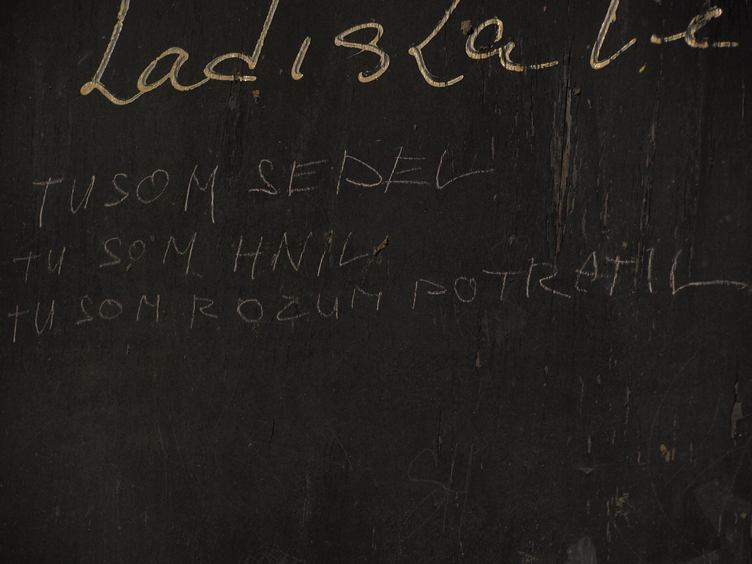 Ladislav
TU SOM SEDEL
TU SOM HNIL
TU SOM ROZUM POTRATIL